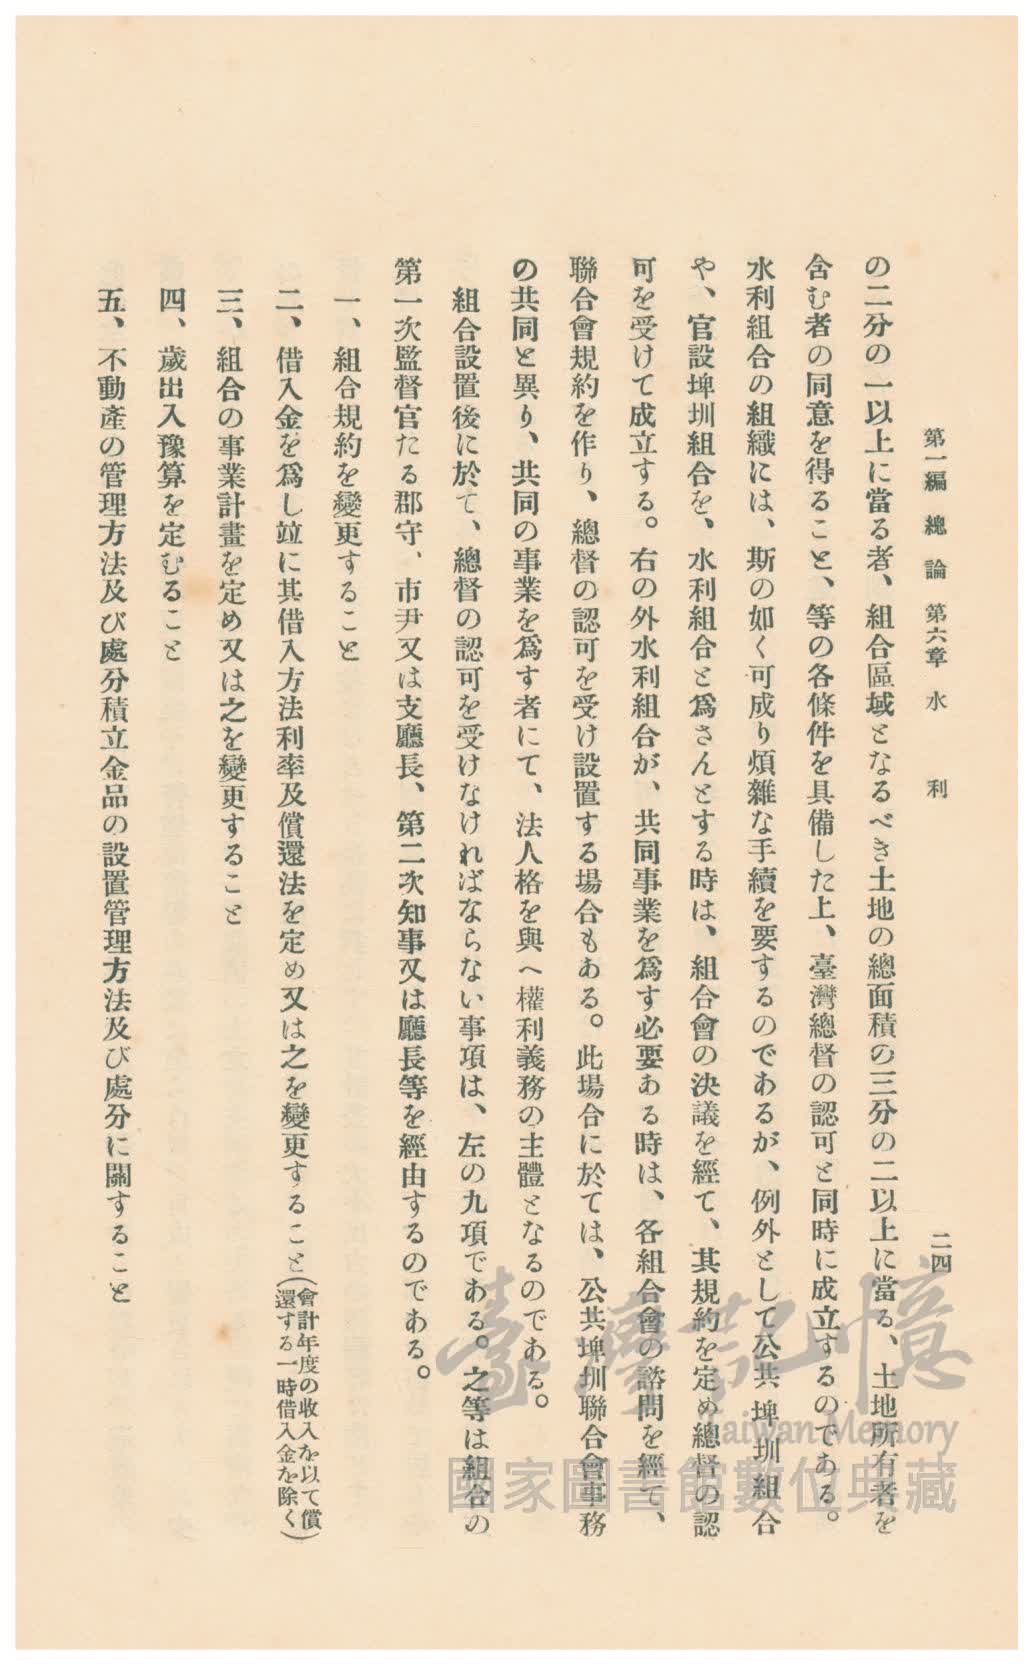 第一編　總論　第六章　水利
二四
の二分の一以上に當る者、組合區域となるべき土地の總面積の三分の二以上に當る、土地所有者を
含む者の同意を得ること、等の各條件を具備した上、臺灣總督の認可と同時に成立するのである。
水利組合の組織には、斯の如く可成り煩雜な手續を要するのであるが、例外として公共埤圳組合
や、官設埤圳組合を、水利組合と爲さんとする時は、組合會の決議を經て、其規約を定め總督の認
可を受けて成立する。右の外水利組合が、共同事業を爲す必要ある時は、各組合會の諮問を經て、
聯合會規約を作り、總督の認可を受け設置する場合もある。此場合に於ては、公共埤圳聯合會事務
の共同と異り、共同の事業を爲す者にて、法人格を與へ權利義務の主體となるのである。
組合設置後に於て、總督の認可を受けなければならない事項は、左の九項である。之等は組合の
第一次監督官たる郡守、市尹又は支廳長、第二次知事又は廳長等を經由するのである。
一、組合規約を變更すること
二、借入金を爲し竝に其借入方法利率及償還法を定め又は之を變更すること(會計年度の收入を以て償
還する一時借入金を除く)
三、組合の事業計畫を定め又は之を變更すること
四、歲出入豫算を定むること
五、不動產の管理方法及び處分積立金品の設置管理方法及び處分に關すること
臺灣記憶
Taiwan Memory
國家圖書館數位典藏